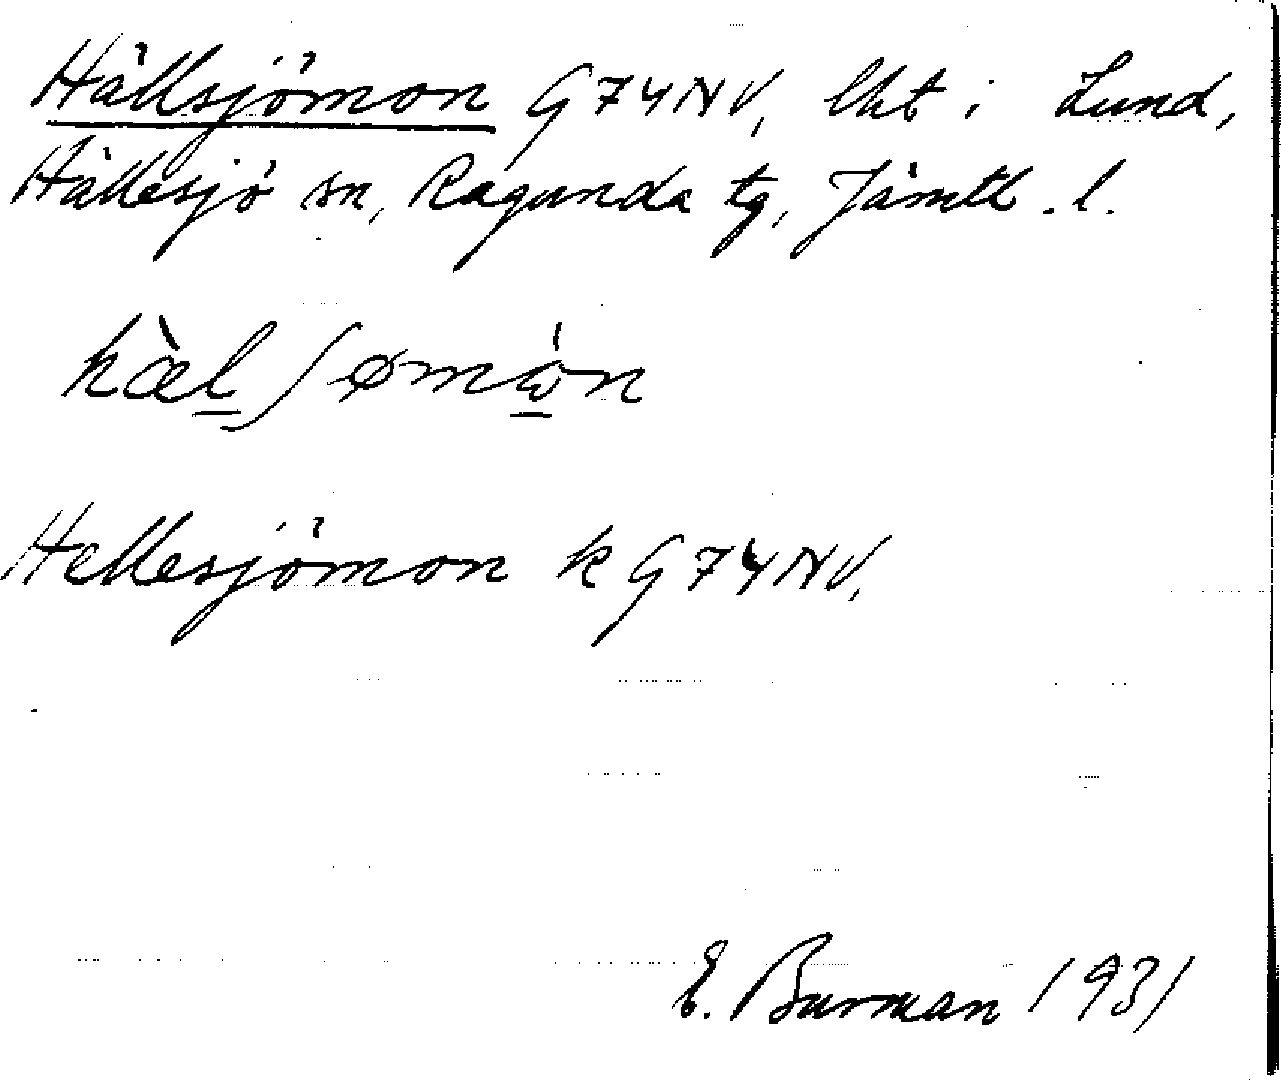 Hällsjömon G74NV, lht i Lund,
Hällesjö sn, Ragunda tg, Jämtl. l.
hæ̀lʃømὼn
Hellesjömon k G74NV,
E. Burman 1931